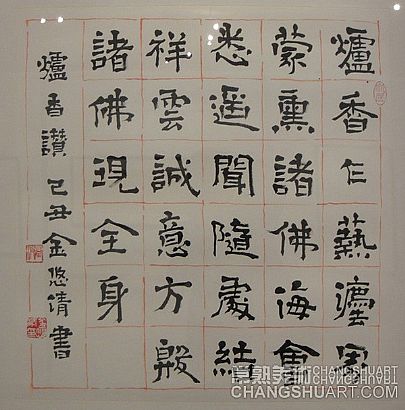 爐香乍爇灋界
蒙熏諸佛海會
悉遥聞隨處結
祥雲誠意方殷
諸佛現全身
爐香讚 己丑金悠倩書
CHANGSHUART.COM